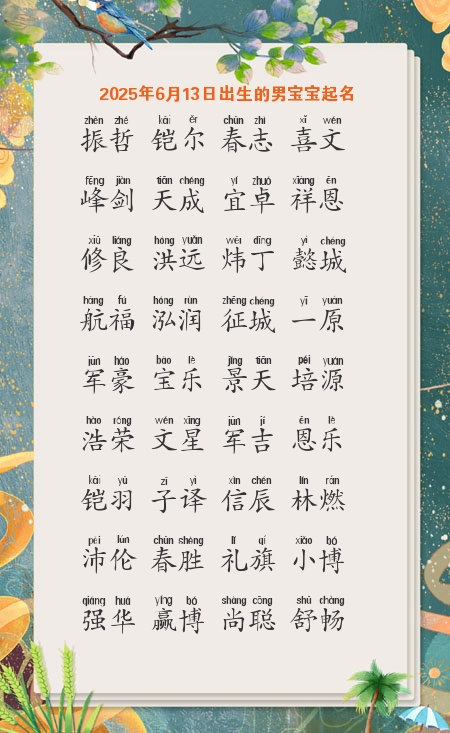 2025年6月13日出生的男宝宝起名
zhèn zhé kǎi ěr chūn zhì xǐ wén
振哲 铠尔 春志 喜文
fēng jiàn tiān chéng yí zhuó xiáng ēn
峰剑 天成 宜卓 祥恩
xiū liáng hóng yuǎn wěi dīng yì chéng
修良 洪远 炜丁 懿城
háng fú hóng rùn zhēng chéng yī yuán
航福 泓润 征城 一原
jūn háo bǎo lè jǐng tiān péi yuán
军豪 宝乐 景天 培源
hào róng wén xīng jūn jí ēn lè
浩荣 文星 军吉 恩乐
kǎi yǔ zǐ yì xìn chén lín rán
铠羽 子译 信辰 林燃
pèi lún chūn shèng lǐ qí xiǎo bó
沛伦 春胜 礼旗 小博
qiáng huá yíng bó shàng cōng shū chàng
强华 赢博 尚聪 舒畅